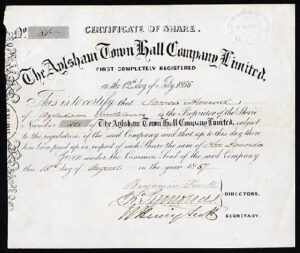 No
CERTIFICATE OF SHARE.
The Aylsham Town Hall Company Limited.
FIRST COMPLETELY REGISTERED
on the 12th day of July, 1855
This is to certify that James
of Aylsham is the Proprietor of the Share
Number of The Aylsham Town Hall Company Limited, subject
to the regulations of the said Company and that up to this day there
has been paid up in respect of such Share the sum of Ten Pounds
Given under the Common Seal of the said Company
this 15th day of August in the year 1857
Benjamin
DIRECTORS.
Scott
SECRETARY.